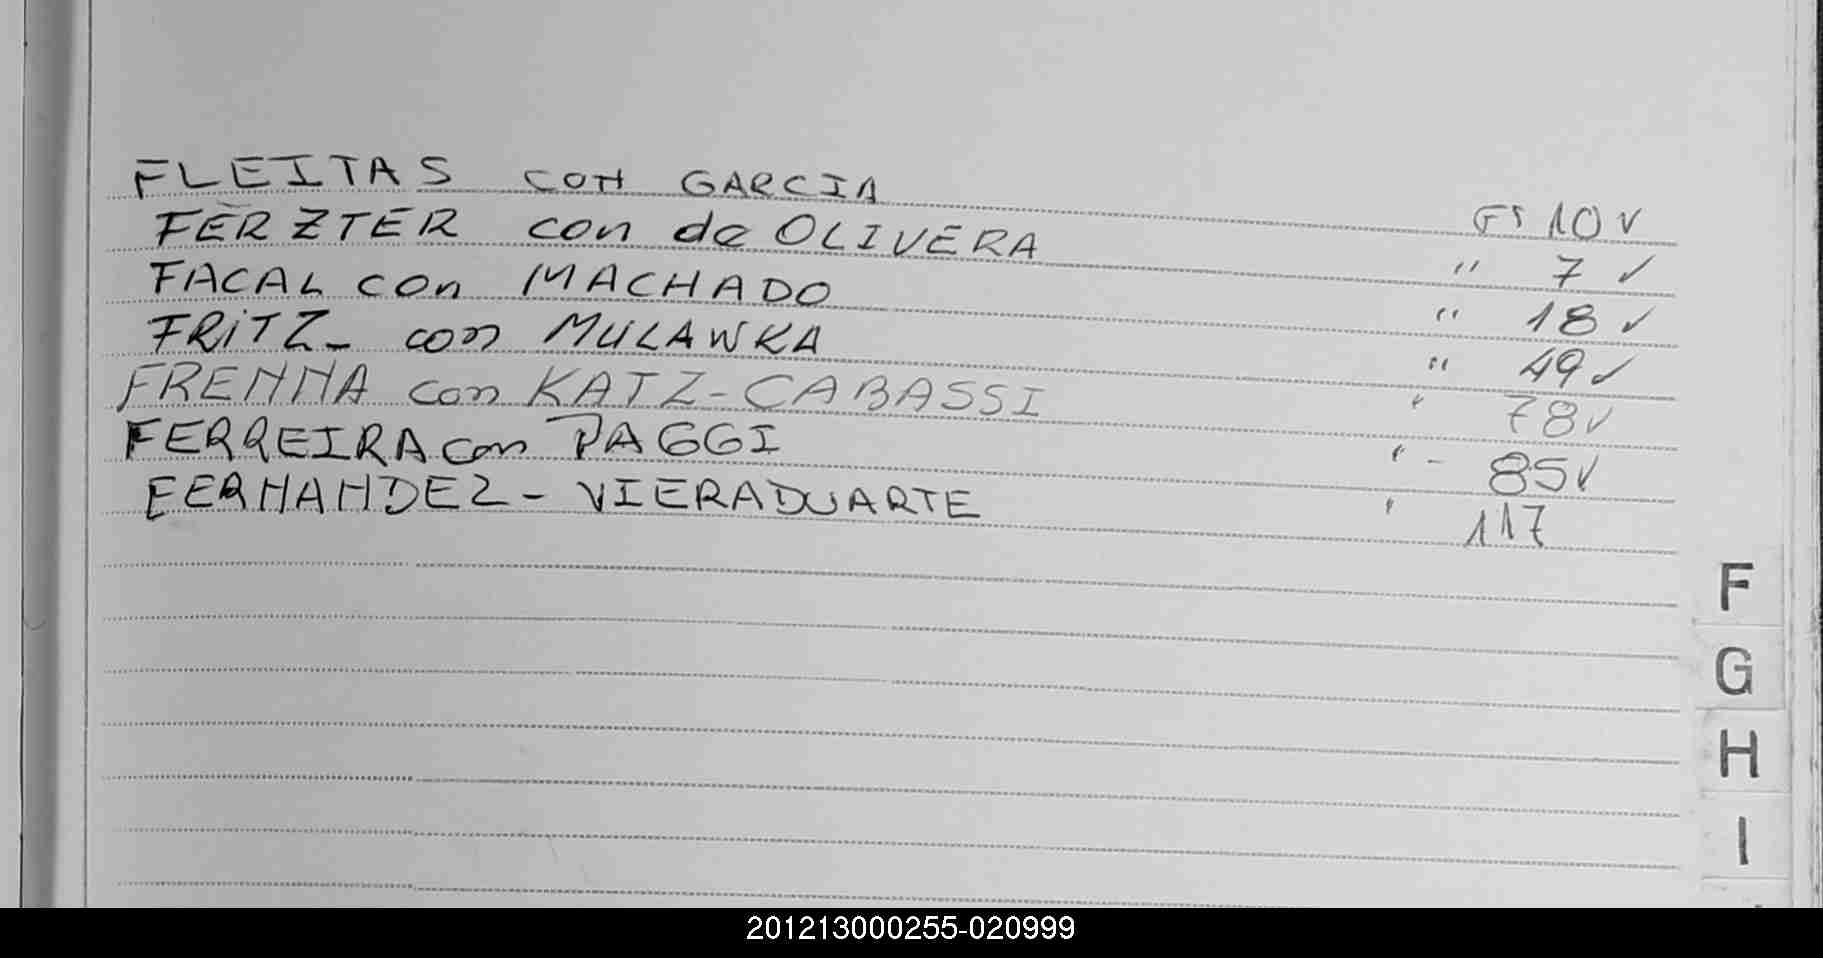 FLEITAS con GARCIA Fs 10 ✓
FERZTER con de OLIVERA " 7 ✓
FACAL con MACHADO " 18 ✓
FRiTZ - con MULAWKA " 49 ✓
FRENNA con KATZ-CABASSI " 78 ✓
FERREIRA con PAGGI " - 85 ✓
FERNANDEZ - VIERADUARTE " 117
F
G
H
I
201213000255-020999